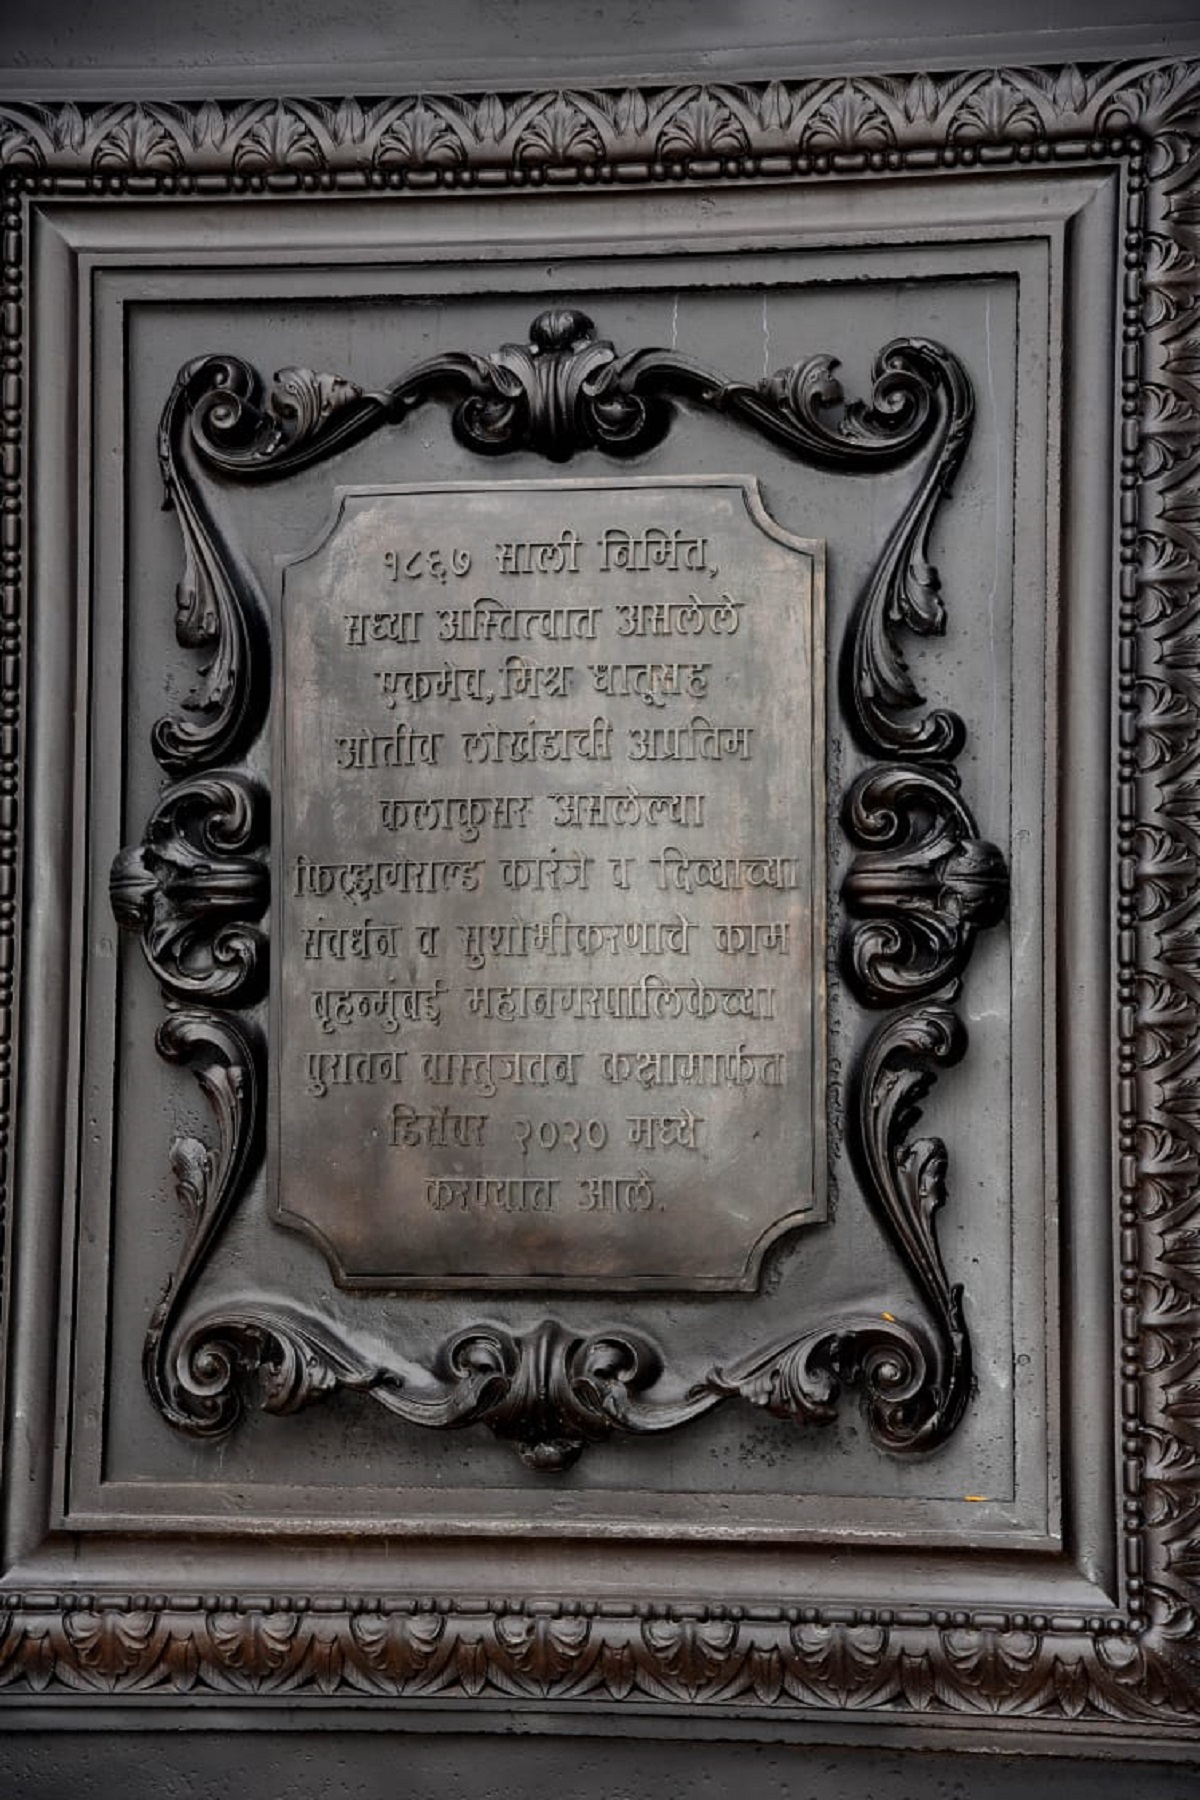 १८६७ साली निर्मित,
सध्या अस्तित्वात असलेले
एकमेव, मिश्र धातूसह
ओतीव लोखंडाची अप्रतिम
कलाकुसर असलेल्या
फिट्झगेराल्ड कारंजे व दिव्याच्या
संवर्धन व सुशोभीकरणाचे काम
बृहन्मुंबई महानगरपालिकेच्या
पुरातन वास्तुजतन कक्षामार्फत
डिसेंबर २०२० मध्ये
करण्यात आले.